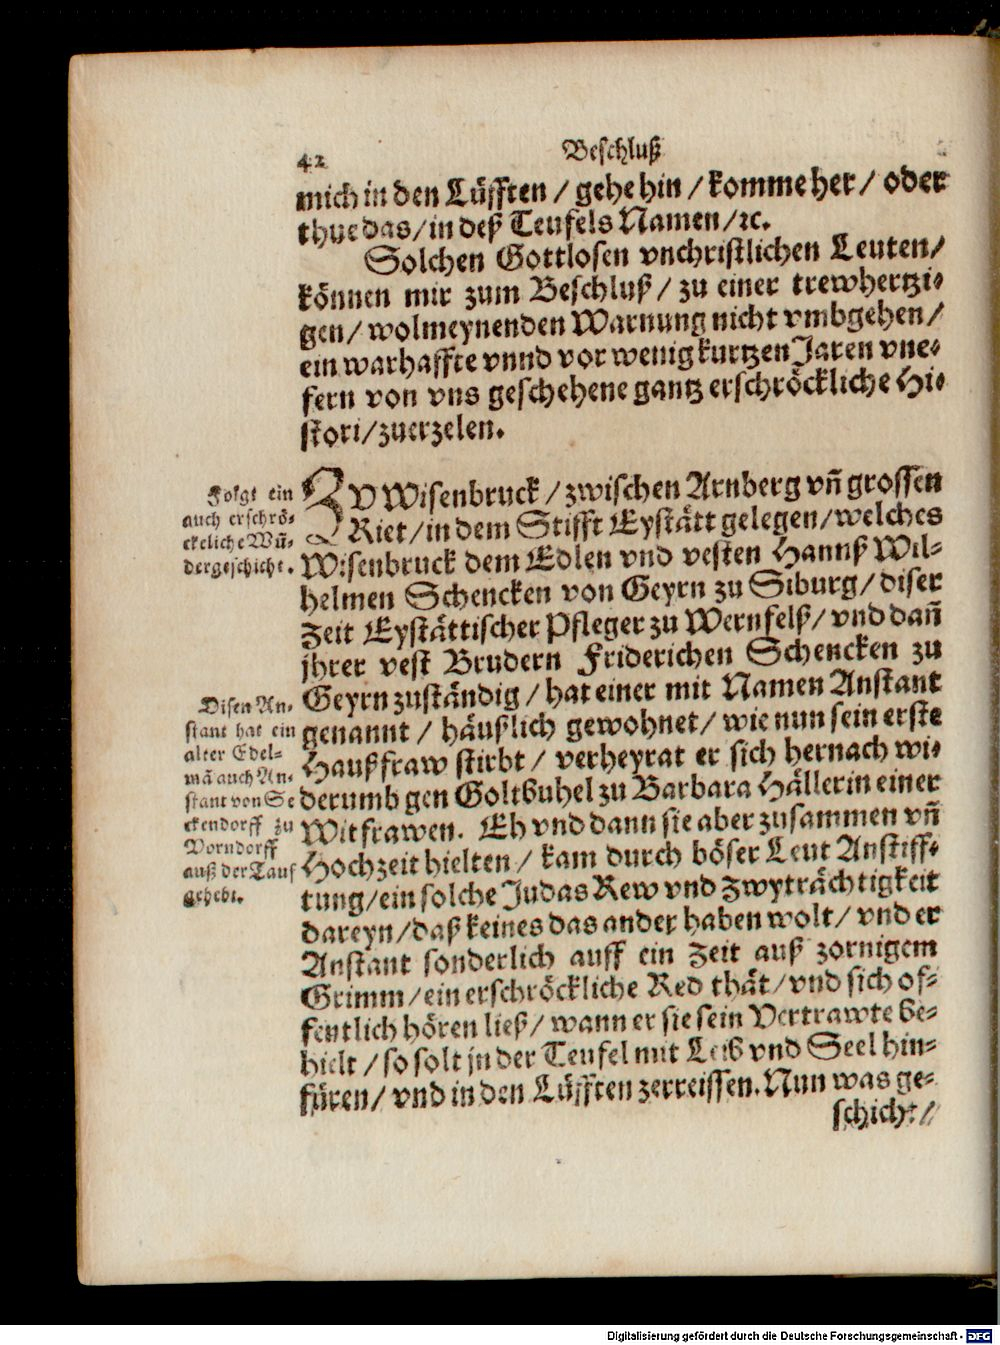 42
Beschluß
mich in den Lüfften / gehe hin / komme her / oder
thue das / in deß Teufels Namen / ꝛc.
Solchen Gottlosen vnchristlichen Leuten /
können mir zum Beschluß / zu einer trewhertzi⸗
gen / wolmeynenden Warnung nicht vmbgehen /
ein warhaffte vnnd vor wenig kurtzen Jaren vne⸗
fern von vns geschehene gantz erschröckliche Hi⸗
stori / zuerzelen.
Folgt ein
auch erschrö⸗
ckeliche Wū⸗
dergeschicht.
ZV Wisenbruck / zwischen Arnberg vn̄ grossen
Riet / in dem Stifft Eystätt gelegen / welches
Wisenbruck dem Edlen vnd vesten Hannß Wil⸗
helmen Schencken von Geyrn zu Siburg / diser
Zeit Eystättischer Pfleger zu Wernfelß / vnd dan̄
jhrer vest Brudern Friderichen Schencken zu
Geyrn zuständig / hat einer mit Namen Anstant
genannt / häußlich gewohnet / wie nun sein erste
Haußfraw stirbt / verheyrat er sich hernach wi⸗
derumb gen Goltbuhel zu Barbara Hällerin einer
Witfrawen. Eh vnd dann sie aber zusammen vn̄
Hochzeit hielten / kam durch böser Leut Anstiff⸗
tung / ein solche Judas Rew vnd Zwyträchtigkeit
dareyn / daß keines das ander haben wolt / vnd er
Anstant sonderlich auff ein Zeit auß zornigem
Grimm / ein erschröckliche Red thät / vnd sich of⸗
fentlich hören ließ / wann er sie sein Vertrawte be⸗
hielt / so solt jn der Teufel mit Leib vnd Seel hin⸗
füren / vnd in den Lüfften zerreissen. Nun was ge⸗
schicht /
Disen An⸗
stant hat ein
alter Edel⸗
mā auch An⸗
stant von Se
ckendorff zu
Vorndorff
auß der Tauf
gehebt.
Digitalisierung gefördert durch die Deutsche Forschungsgemeinschaft - DFG